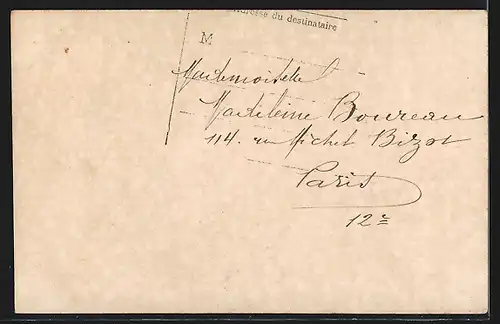 Adresse du destinataire
M
Mademoiselle
Madeleine Boureau
114. rue Michel Bizot
Paris
12e